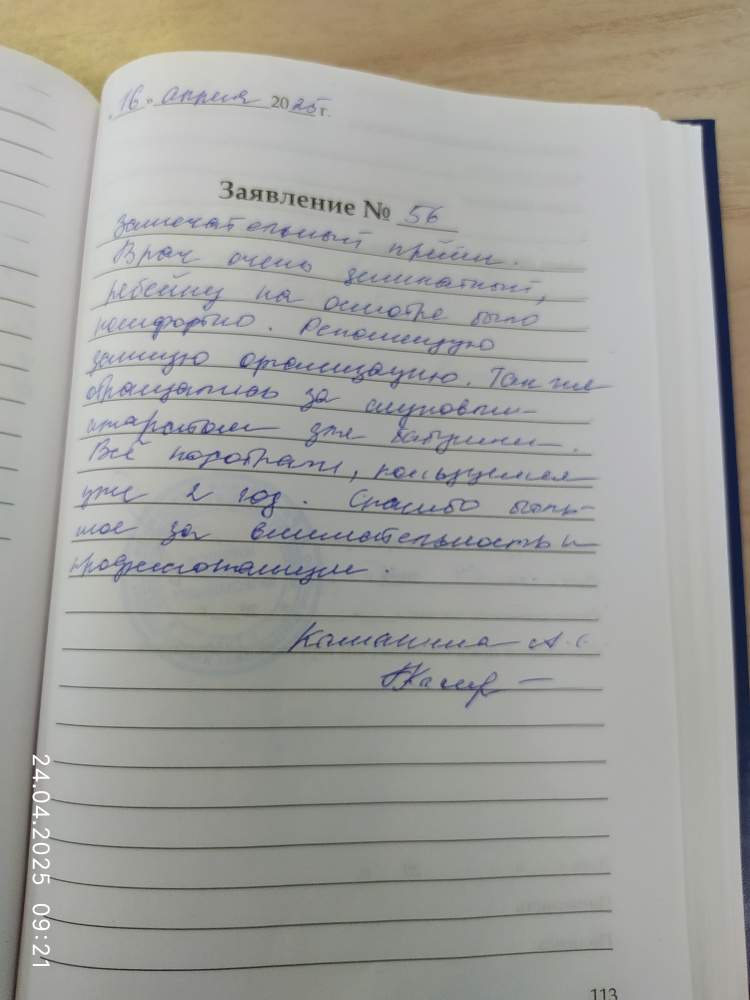 „16" апреля 2025 г.
Заявление № 56
Замечательный приём.
Врач очень деликатный,
ребёнку на осмотре было
комфортно. Рекомендую
данную организацию. Так же
обращались за слуховым
аппаратом для бабушки.
Всё подобрали, пользуемся
уже 2 год. Спасибо боль-
шое за внимательность и
профессионализм.
А.С.
113
24.04.2025 09:21